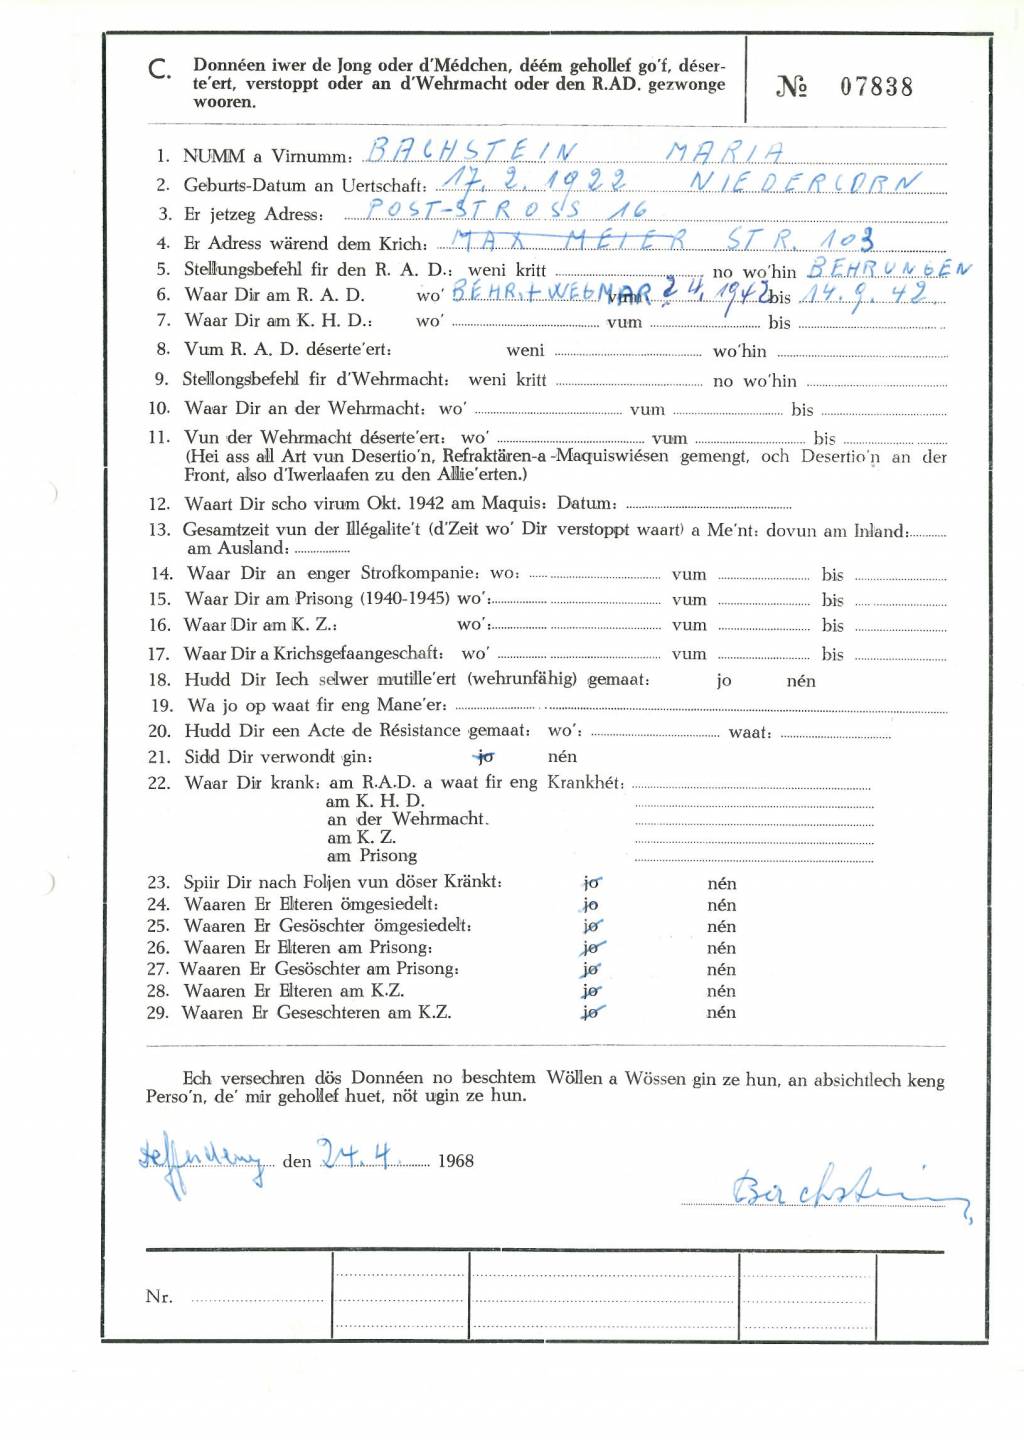 C. Donnéen iwer de Jong oder d'Médchen, déém gehollef go'f, déser-
te'ert, verstoppt oder an d'Wehrmacht oder den R.AD. gezwonge
wooren.
№ 07838
1. NUMM a Virnumm: BACHSTEIN MARIA
2. Geburts-Datum an Uertschaft: 17. 2. 1922 NIEDERCORN
3. Er jetzeg Adress: POST-STROSS 16
4. Er Adress wärend dem Krich: MAX MEIER STR. 103
5. Stellungsbefehl fir den R. A. D.: weni kritt no wo'hin BEHRUNGEN
6. Waar Dir am R. A. D. wo' BEHR. + WEGMAR vum 2 4. 1942 bis 14. 9. 42
7. Waar Dir am K. H. D.: wo' vum bis
8. Vum R. A. D. déserte'ert: weni wo'hin
9. Stellongsbefehl fir d'Wehrmacht: weni kritt no wo'hin
10. Waar Dir an der Wehrmacht: wo' vum bis
11. Vun der Wehrmacht déserte'ert: wo' vum bis
(Hei ass all Art vun Desertio'n, Refraktären-a-Maquiswiésen gemengt, och Desertio'n an der
Front, also d'Iwerlaafen zu den Allie'erten.)
12. Waart Dir scho virum Okt. 1942 am Maquis: Datum:
13. Gesamtzeit vun der Illégalite't (d'Zeit wo' Dir verstoppt waart) a Me'nt: dovun am Inland:
am Ausland:
14. Waar Dir an enger Strofkompanie: wo: vum bis
15. Waar Dir am Prisong (1940-1945) wo': vum bis
16. Waar Dir am K. Z.: wo': vum bis
17. Waar Dir a Krichsgefaangeschaft: wo' vum bis
18. Hudd Dir Iech selwer mutille'ert (wehrunfähig) gemaat: jo nén
19. Wa jo op waat fir eng Mane'er:
20. Hudd Dir een Acte de Résistance gemaat: wo': waat:
21. Sidd Dir verwondt gin: jo nén
22. Waar Dir krank: am R.A.D. a waat fir eng Krankhét:
am K. H. D.
an der Wehrmacht.
am K. Z.
am Prisong
23. Spiir Dir nach Foljen vun döser Kränkt: jo nén
24. Waaren Er Elteren ömgesiedelt: jo nén
25. Waaren Er Gesöschter ömgesiedelt: jo nén
26. Waaren Er Elteren am Prisong: jo nén
27. Waaren Er Gesöschter am Prisong: jo nén
28. Waaren Er Elteren am K.Z. jo nén
29. Waaren Er Geseschteren am K.Z. jo nén
Ech versechren dös Donnéen no beschtem Wöllen a Wössen gin ze hun, an absichtlech keng
Perso'n, de' mir gehollef huet, nöt ugin ze hun.
den 24. 4. 1968
Bachstein
Nr.